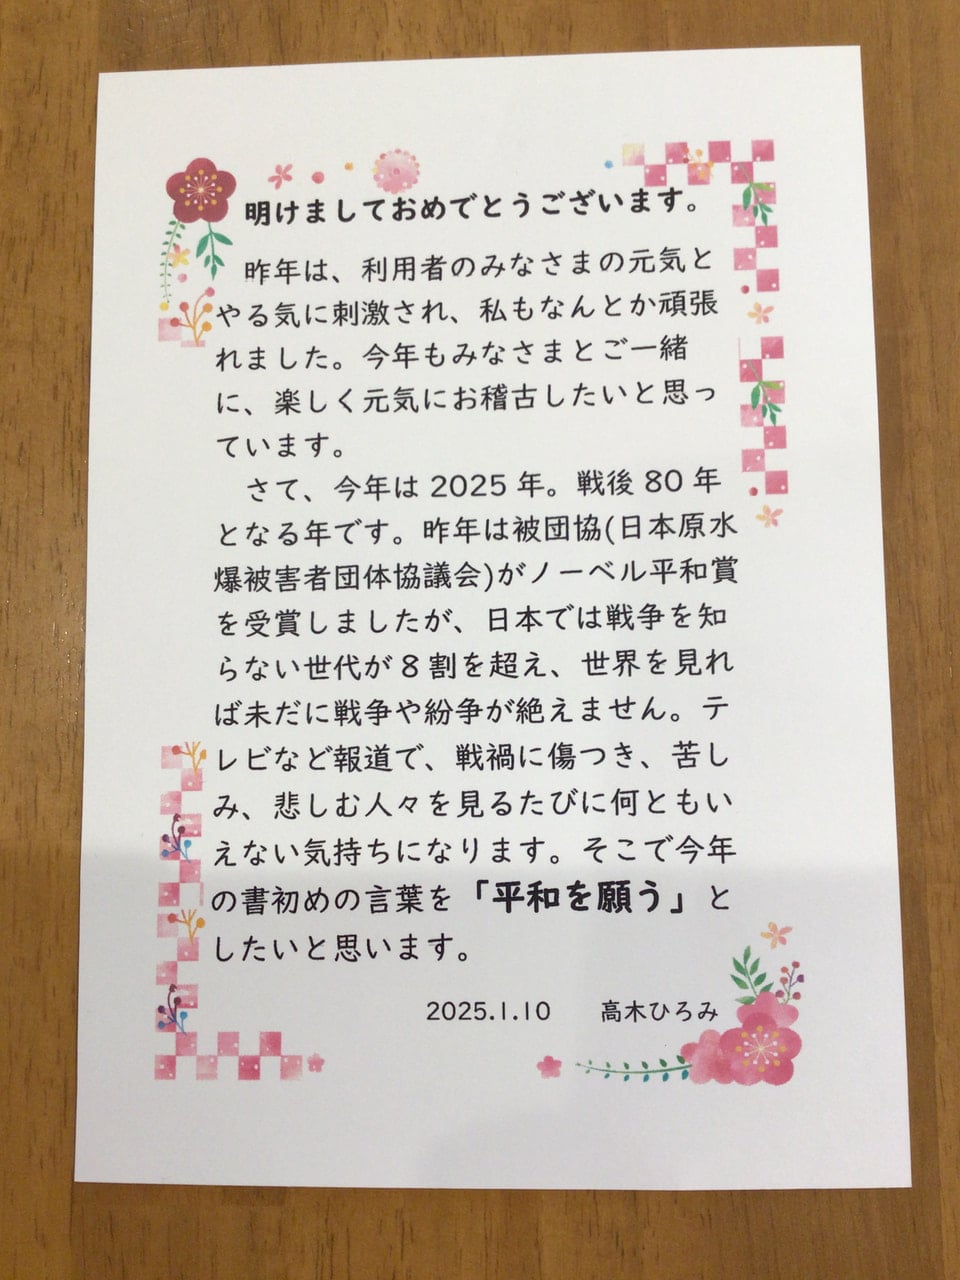 明けましておめでとうございます。
昨年は、利用者のみなさまの元気と
やる気に刺激され、私もなんとか頑張
れました。今年もみなさまとご一緒
に、楽しく元気にお稽古したいと思っ
ています。
さて、今年は 2025 年。戦後 80 年
となる年です。昨年は被団協(日本原水
爆被害者団体協議会)がノーベル平和賞
を受賞しましたが、日本では戦争を知
らない世代が 8 割を超え、世界を見れ
ば未だに戦争や紛争が絶えません。テ
レビなど報道で、戦禍に傷つき、苦し
み、悲しむ人々を見るたびに何ともい
えない気持ちになります。そこで今年
の書初めの言葉を「平和を願う」と
したいと思います。
2025.1.10 高木ひろみ